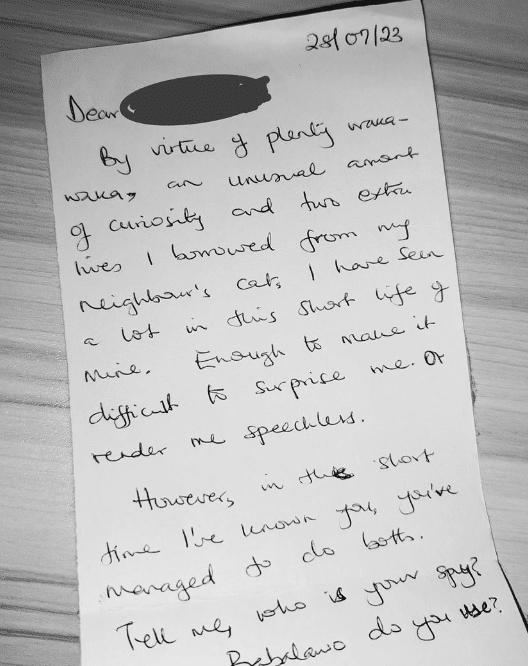 28/07/23
Dear
By virtue of plenty waka-
waka, an unusual amont
of curiosity and two extra
lives I borrowed from my
neighbour's cat, I have seen
a lot in this short life of
mine. Enough to make it
difficult to surprise me. Or
render me speechless.
However, in the short
time I've known you, you've
managed to do both.
Tell me, who is your spy?
Babalawo do you use?